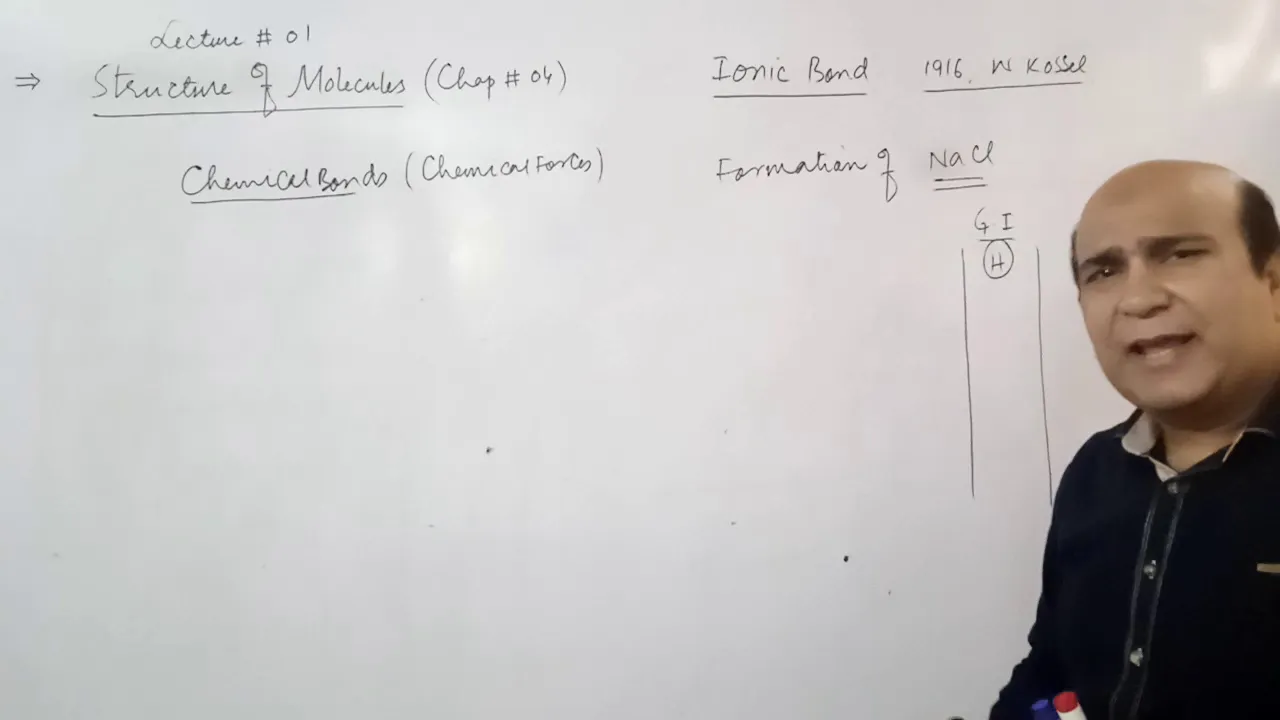 Lecture # 01
⇒ Structure of Molecules (Chap # 04)
Chemical Bonds (Chemical Forces)
Ionic Bond 1916, W Kossel
Formation of NaCl
G I
H